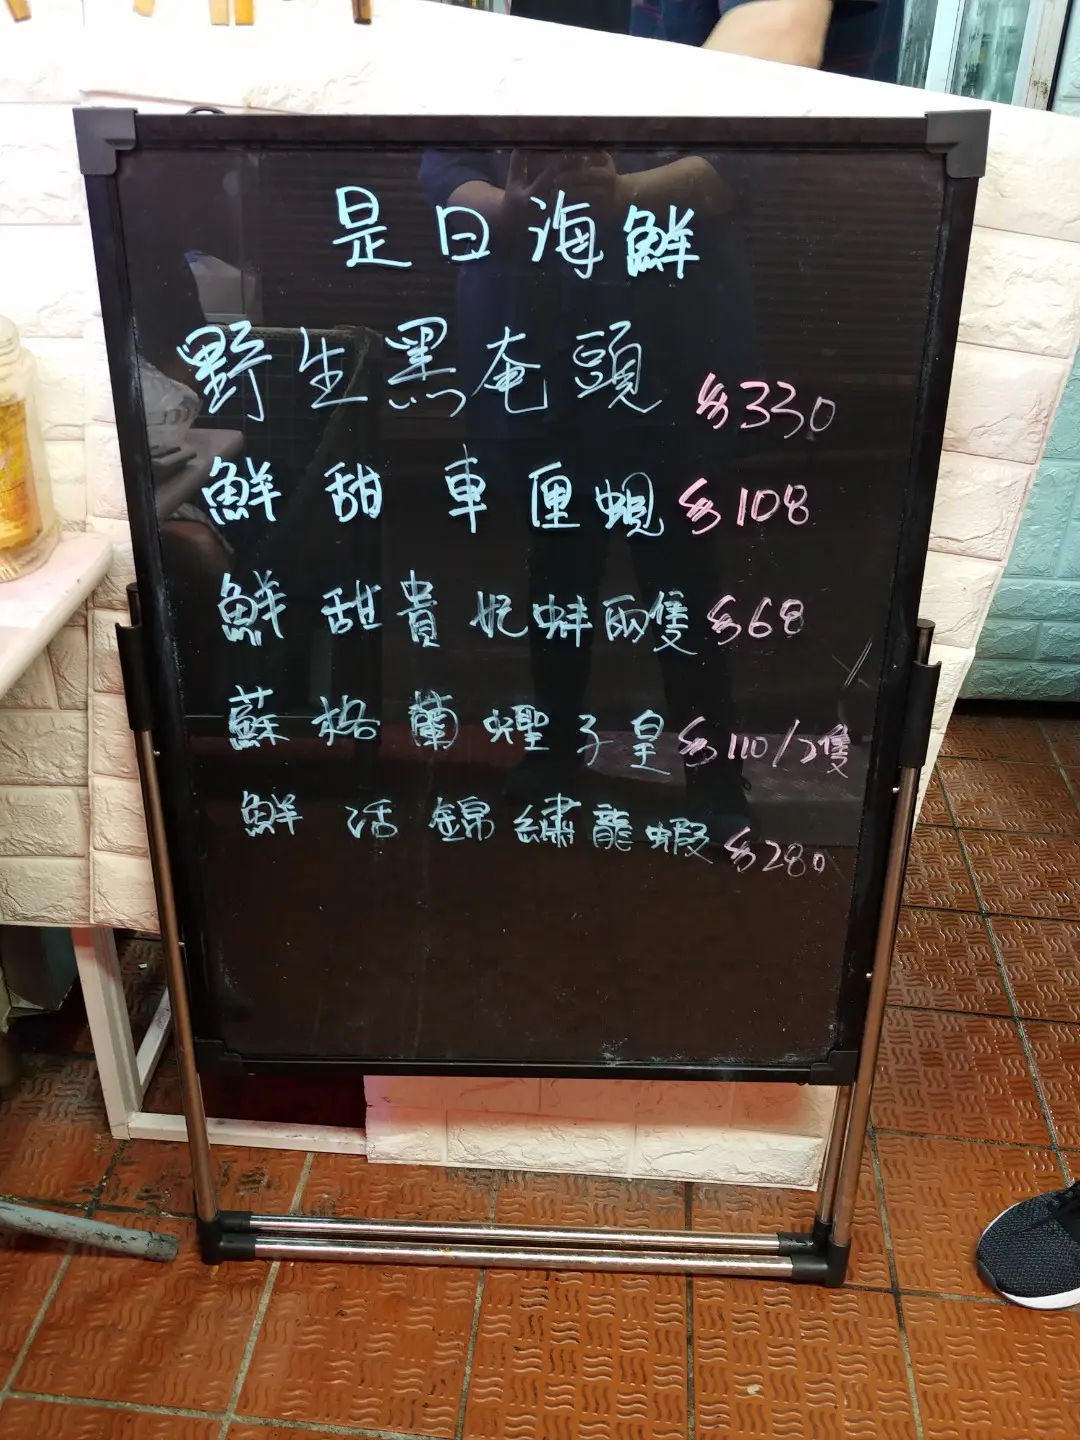 是日海鮮
野生黑奄頭 $330
鮮甜車厘蜆 $108
鮮甜貴妃蚌兩隻 $68
蘇格蘭蟶子皇 $110/2隻
鮮活錦繡龍蝦 $280